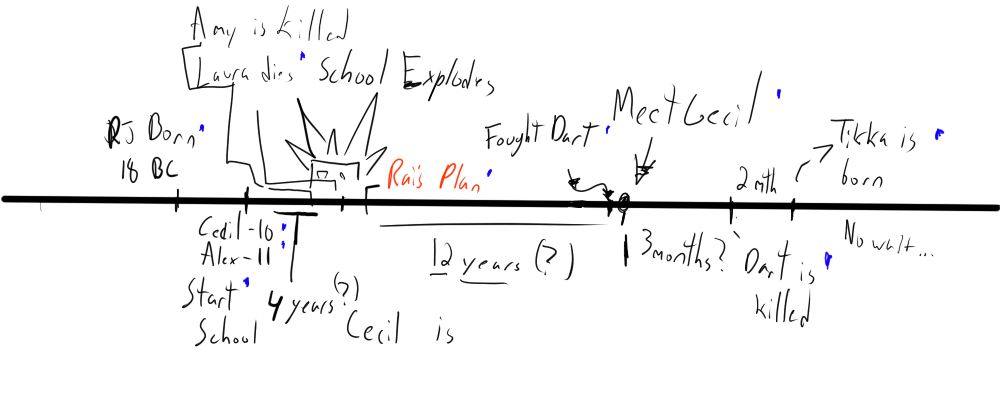 Amy is killed
Laura dies School Explodes
RJ Born
18 BC
Rais Plan
Fought Dart
Meet Cecil
2 mth
Tikka is
born
Cecil -10
Alex -11
Start
School
4 years (?)
Cecil is
12 years (?)
1
3 months?
Dart is
killed
No wait...